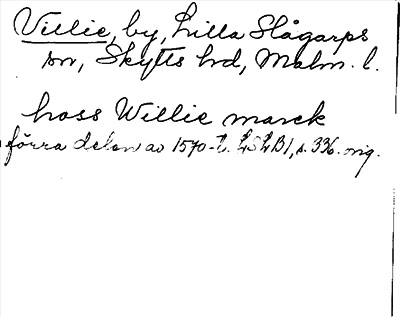 Villie, by, Lilla Slågarps
sn, Skytts hd, Malm. l.
hoss Willie marck
förra delen av 1570-t. LSLB1, s. 336. orig.